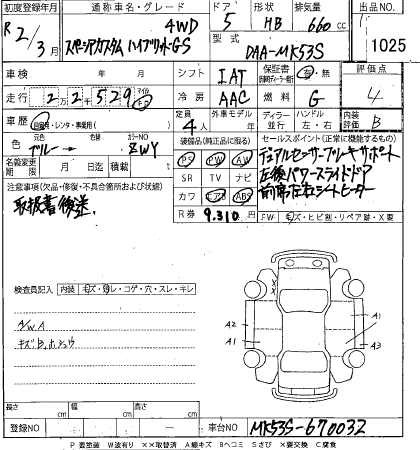 初度登録年月 通称車名・グレード ドア 形状 排気量 出品NO
R2/3月 スペーシアカスタム ハイブリッドGS 4WD 5 HB 660cc 1025
型式 DAA-MK53S
車検 年 月 シフト IAT 保証書 有・無 評価点
走行 22千529 冷房 AAC 燃料 G 4
車歴 自家用・レンタ・事業用( ) 定員 4人 外車モデル年 ディーラー 並行 ハンドル 左・右 内装評価 B
色 元色 ブルー→ カラーNO ZWY 装備品(純正品に限る) セールスポイント(正常に機能するもの)
名義変更期限 月 日迄 積載 PS PW AW デュアルセンサーブレーキサポート
注意事項(欠品・修復・不具合箇所および状態) SR TV ナビ 左後パワースライドドア
取扱書後送 カワ エアB ABS 前席左右シートヒーター
R券 9,310円 FW キズ・ヒビ割・リペア跡・X要
検査員記入 内装 キズ・ヨゴレ・コゲ・穴・スレ・キレ
A/W A
A2 A1 A1 A3
長さ cm 幅 cm 高さ cm
登録NO 車台NO MK53S-670032
P 要塗装 W波有り XX取替済 A線キズ Bヘコミ Sさび X要交換 C腐食